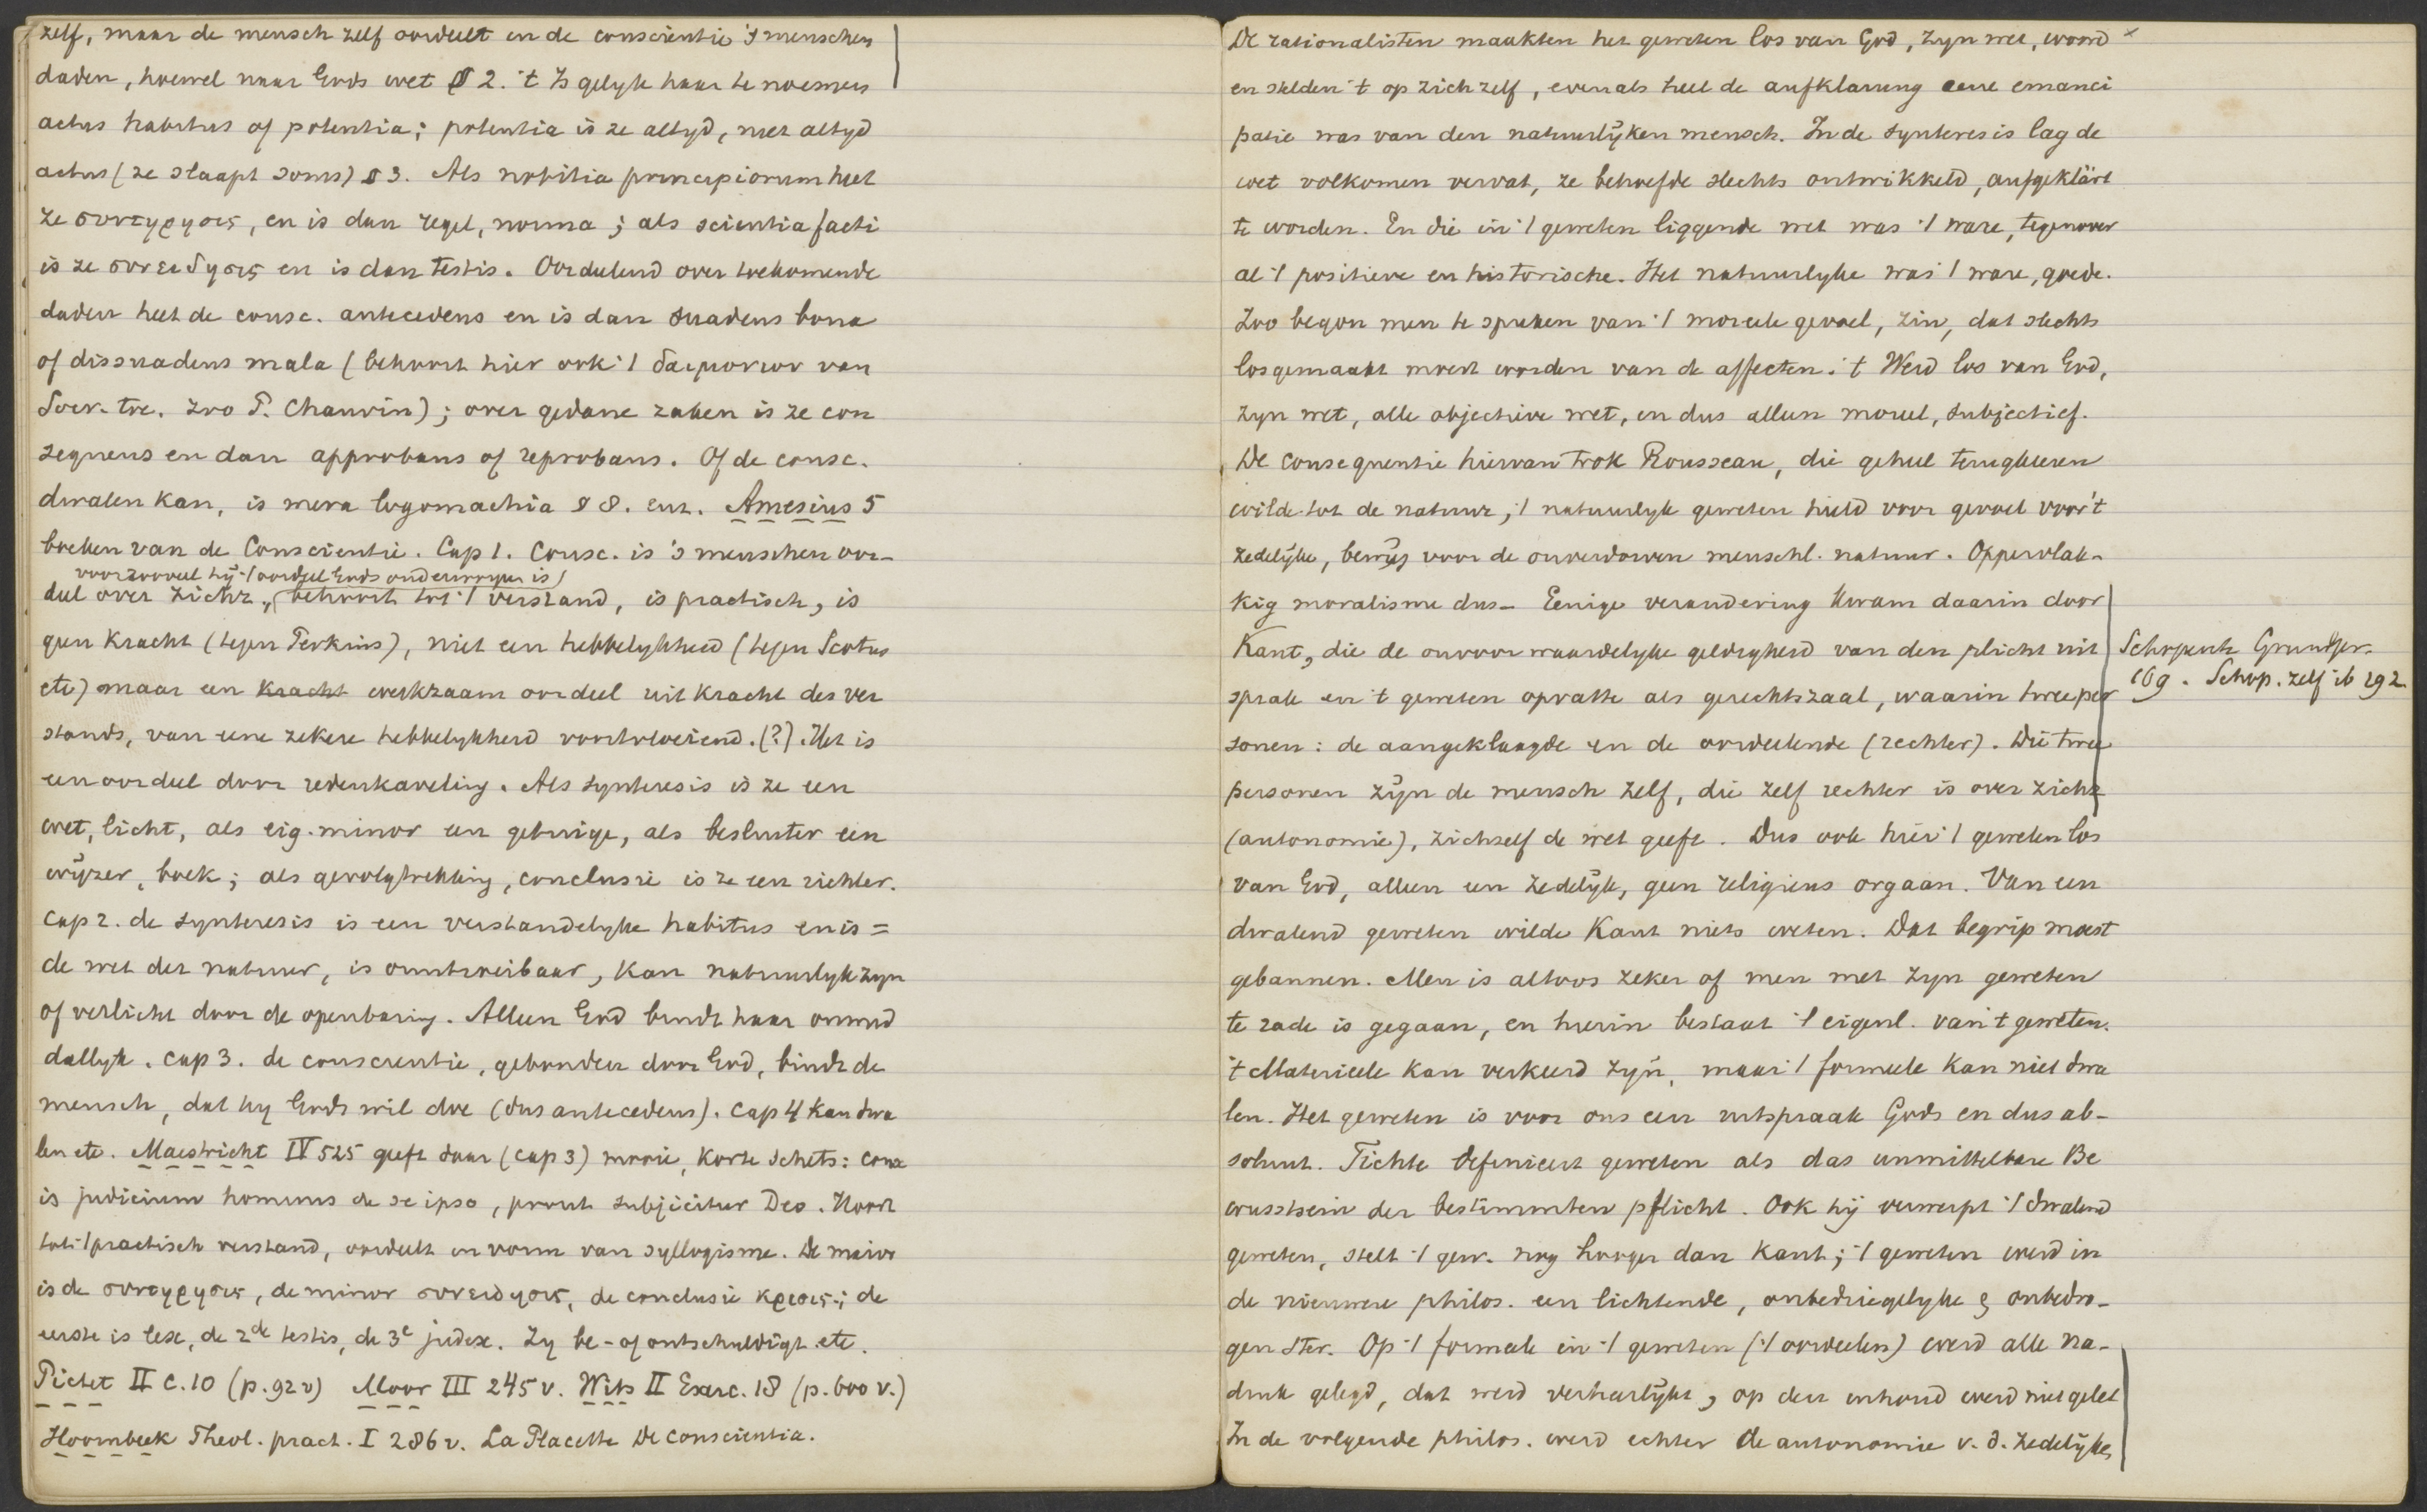 zelf, maar de mensch zelf oordeelt en de conscientie 's menschen
daden, hoewel naar Gods wet § 2. 't Is gelyk haar te noemen
actus habitus of potentia; potentia is ze altyd, niet altyd
actus (ze slaapt soms) § 3. Als notitia principiorum heet
ze συντηρησις, en is dan regel, norma; als scientia facti
is ze συνειδησις en is dan testis. Oordelend over toekomende
daden heet de consc. antecedens en is dan suadens bona
of dissuadens mala (behoort hier ook 't δαιμονιον van
Socr. toe. Zoo P. Chauvin); over gedane zaken is ze con
sequens en dan approbans of reprobans. Of de consc.
dwalen kan, is mera logomachia § 8. enz. Amesius 5
boeken van de Conscientie. Cap 1. Consc. is 's menschen oor-
voorzooveel hij 't oordeel Gods onderworpen is)
deel over zichz., (behoort tot 't verstand, is practisch, is
geen kracht (tegen Perkins), niet een hebbelykheid (tegen Scotus
etc) maar een kracht werkzaam oordeel uit kracht des ver
stands, van eene zekere hebbelykheid voortvloeiend. (?). Het is
een oordeel door redenkaveling. Als synteresis is ze een
wet, licht, als eig. minor een getuige, als besluiter een
wijzer, boek; als gevolgtrekking, conclusie is ze een richter.
Cap 2. de synteresis is een verstandelyke habitus en is =
de wet der natuur, is onuitroeibaar, kan natuurlyk zyn
of verlicht door de openbaring. Alleen God bindt haar onmid
dellyk. Cap 3. de conscientie, gebonden door God, bindt de
mensch, dat hy Gods wil doe (dus antecedens). Cap 4 kan dwa
len etc. Maestricht IV 525 geeft daar (cap 3) mooie, korte schets: Consc
is judicium hominis de se ipso, prout subjicitur Deo. Hoort
tot 't practisch verstand, oordeelt in vorm van syllogisme. De maior
is de συντηρησις, de minor συνειδησις, de conclusie κρισις; de
eerste is lex, de 2de testis, de 3e judex. Zy be- of ontschuldigt etc.
Pictet II C. 10 (p. 92 v) Moor III 245 v. Wits II Exerc. 18 (p. 600 v.)
Hoornbeek Theol. pract. I 286 v. La Placette De Conscientia.
De rationalisten maakten het geweten los van God, zyn wet, woord ×
en stelden 't op zichzelf, evenals heel de aufklarung eene emanci
patie was van den natuurlijken mensch. In de synteresis lag de
wet volkomen vervat, ze behoefde slechts ontwikkeld, aufgeklärt
te worden. En die in 't geweten liggende wet was 't ware, tegenover
al 't positieve en historische. Het natuurlyke was 't ware, goede.
Zoo begon men te spreken van 't moreele gevoel, zin, dat slechts
losgemaakt moest worden van de affecten. 't Werd los van God,
zyn wet, alle objectieve wet, en dus alleen moreel, subjectief.
De consequentie hiervan trok Rousseau, die geheel terugkeeren
wilde tot de natuur, 't natuurlyk geweten hield voor gevoel voor 't
zedelijke, bewijs voor de onverdorven menschl. natuur. Oppervlak-
kig moralisme dus - Eenige verandering kwam daarin door
Kant, die de onvoorwaardelyke geldigheid van den plicht uit
sprak en 't geweten opvatte als gerechtszaal, waarin twee per
sonen: de aangeklaagde en de oordeelende (rechter). Die twee
personen zijn de mensch zelf, die zelf rechter is over zichz
(autonomie), zichzelf de wet geeft. Dus ook hier 't geweten los
van God, alleen een zedelijk, geen religieus orgaan. Van een
dwalend geweten wilde Kant niets weten. Dat begrip moest
gebannen. Men is altoos zeker of men met zyn geweten
te rade is gegaan, en hierin bestaat 't eigenl. van 't geweten.
't Materieele kan verkeerd zyn, maar 't formeele kan niet dwa
len. Het geweten is voor ons een uitspraak Gods en dus ab-
soluut. Fichte definieert geweten als das unmittelbare Be
wusstsein der bestimmten pflicht. Ook hij verwerpt 't dwalend
geweten, stelt 't gew. nog hooger dan Kant; 't geweten werd in
de nieuwere philos. een lichtende, onbedriegelyke & onbedro-
gen ster. Op 't formeele in 't geweten ('t oordeelen) werd alle na-
druk gelegd, dat werd verheerlijkt, op den inhoud werd niet gelet
In de volgende philos. werd echter de autonomie v. d. zedelijke,
Schopenh Grundpr.
169. Schop. zelf ib 192